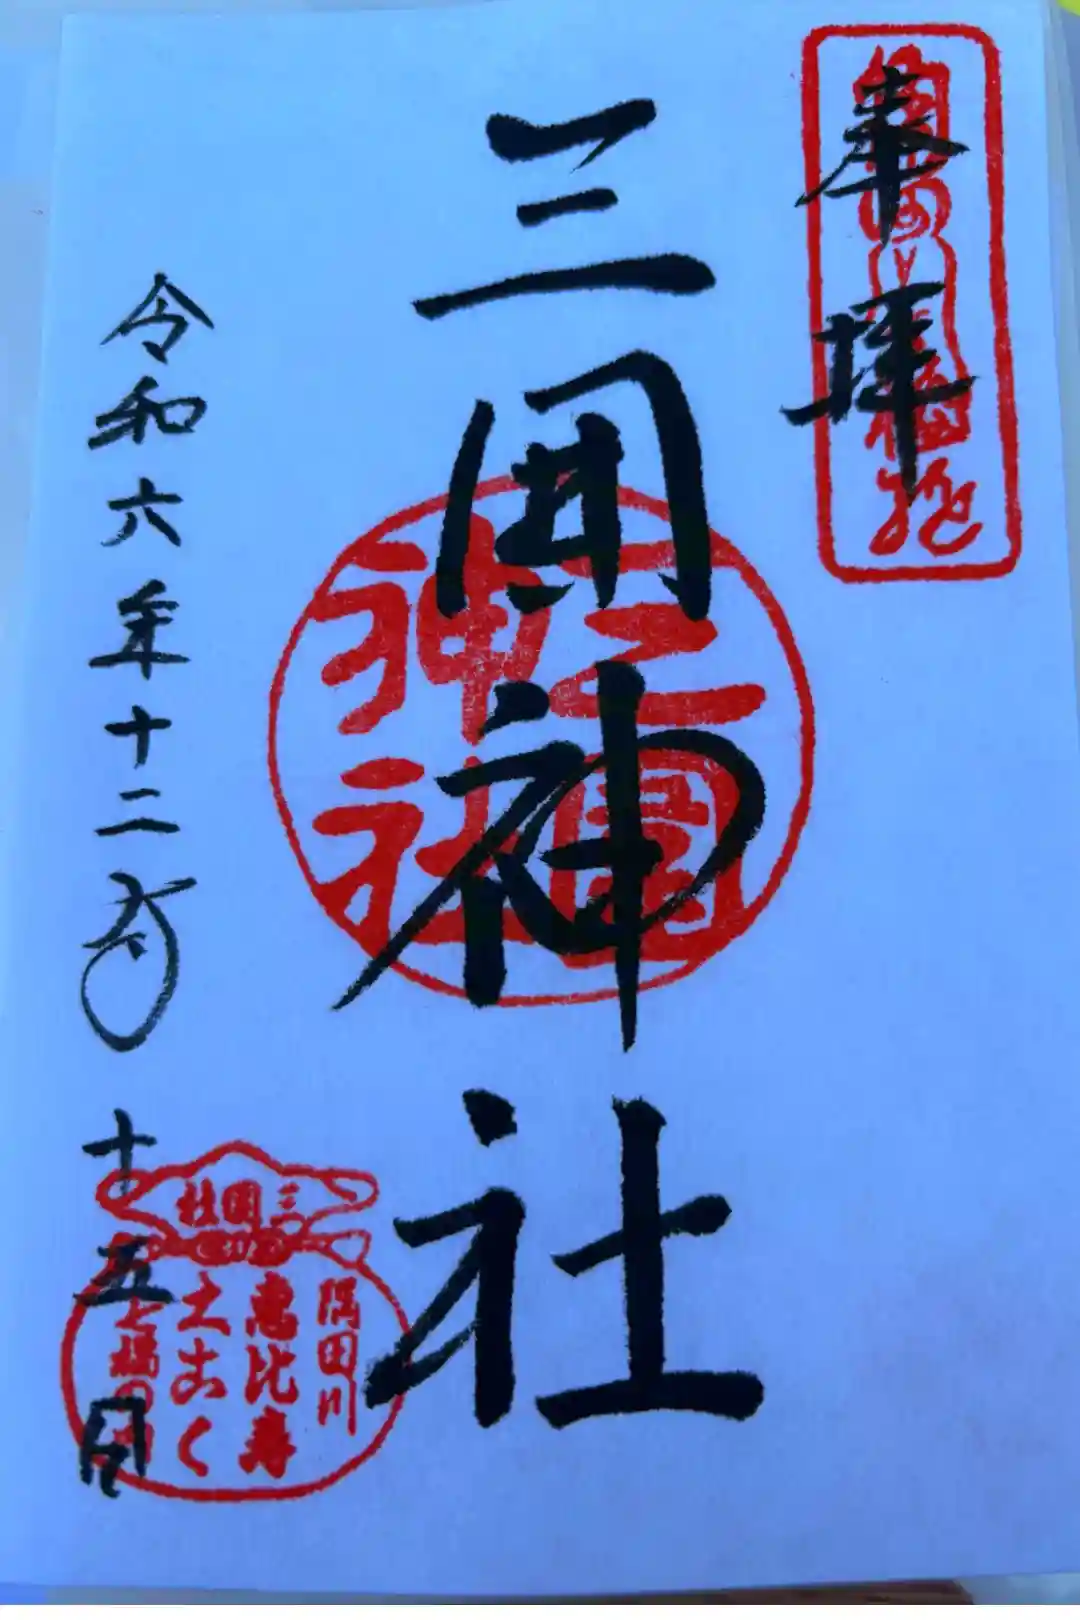 奉拝
三囲神社
三囲神社
令和六年十二月十五日
三囲社
隅田川
恵比寿
大こく
七福